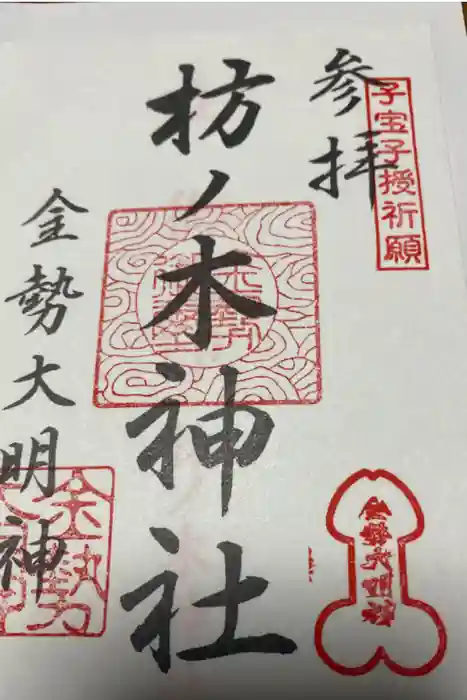 参拝
子宝子授祈願
枋ノ木神社
金勢大明神
金勢大明神